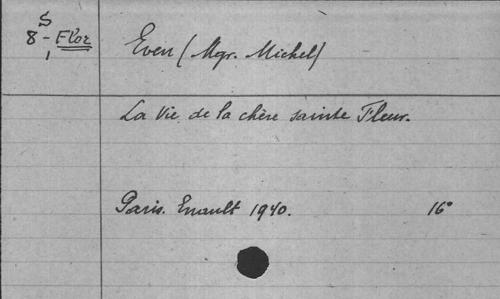 S
8 - Flor
1
Even (Mgr. Michel)
La Vie de la chère sainte Fleur.
Paris. Enault 1940. 16°